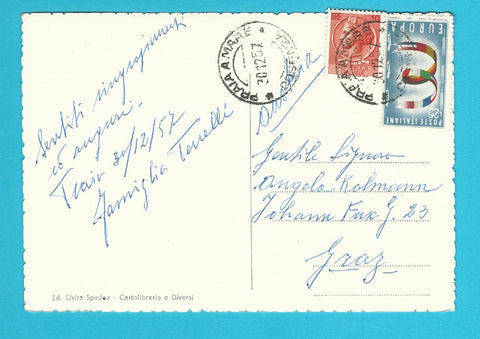 Sentiti ringraziamenti
ed auguri.
30/12/57
Famiglia
PRAIA A MARE
30.12.57
EUROPA
POSTE ITALIANE
25
(Austria)
Gentile Signora
Angela Kolmann
Johann Fux G. 23
Graz
Ed. Livira Spadea - Cartolibreria e Diversi